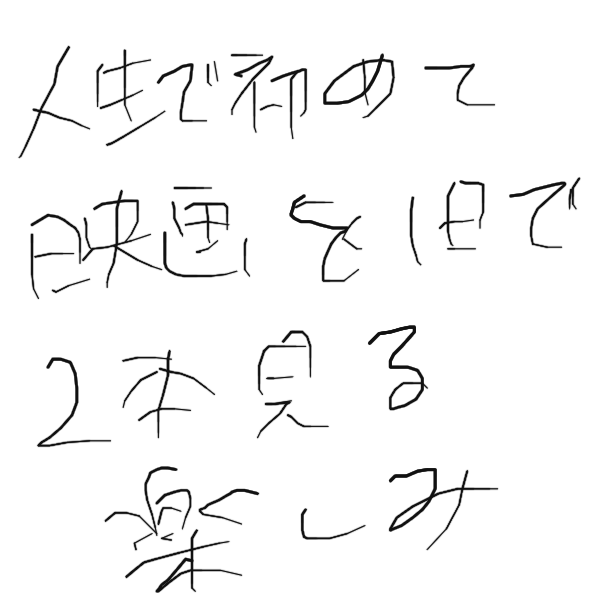 人生で初めて
映画を1日で
2本見る
楽しみ